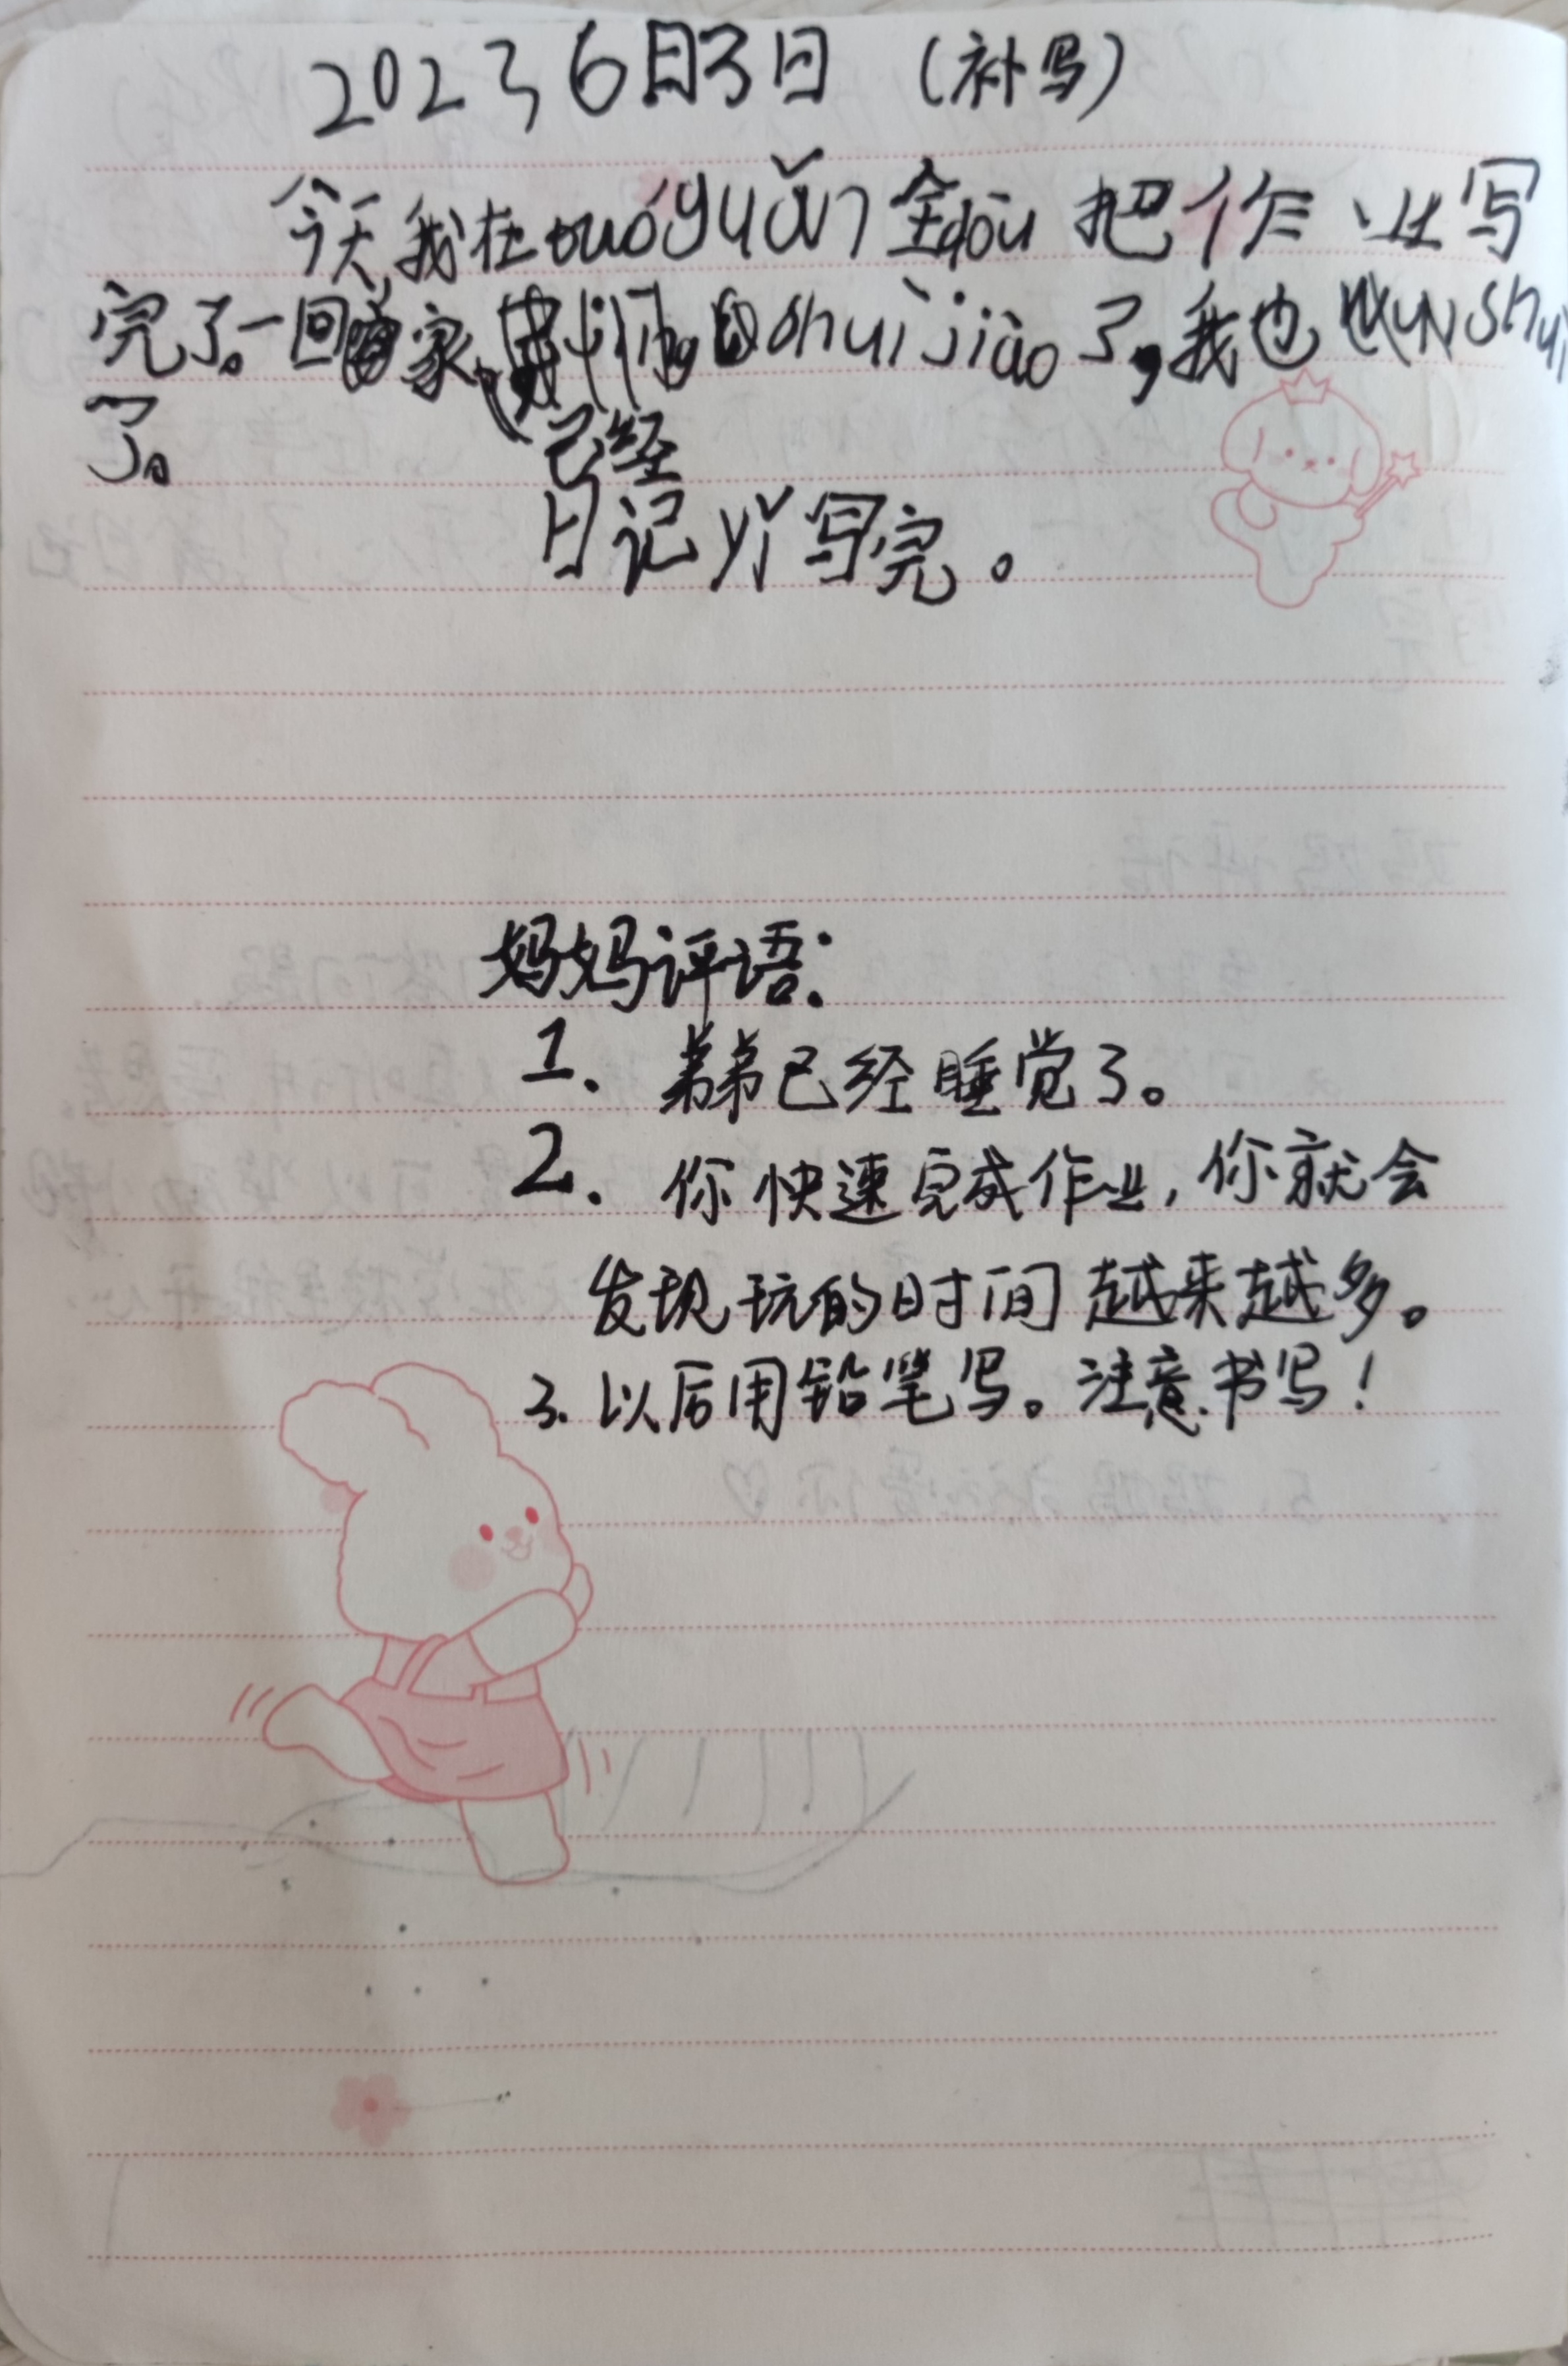 2023 6月3日 (补写)
今天,我在tuóyuǎn全dōu把作业写
完了。一回家,shuìjiào了,我也
了。
已经
日记yǐ写完。
妈妈评语:
1、弟弟已经睡觉了。
2、你快速完成作业,你就会
发现玩的时间越来越多。
3.以后用铅笔写。注意书写!